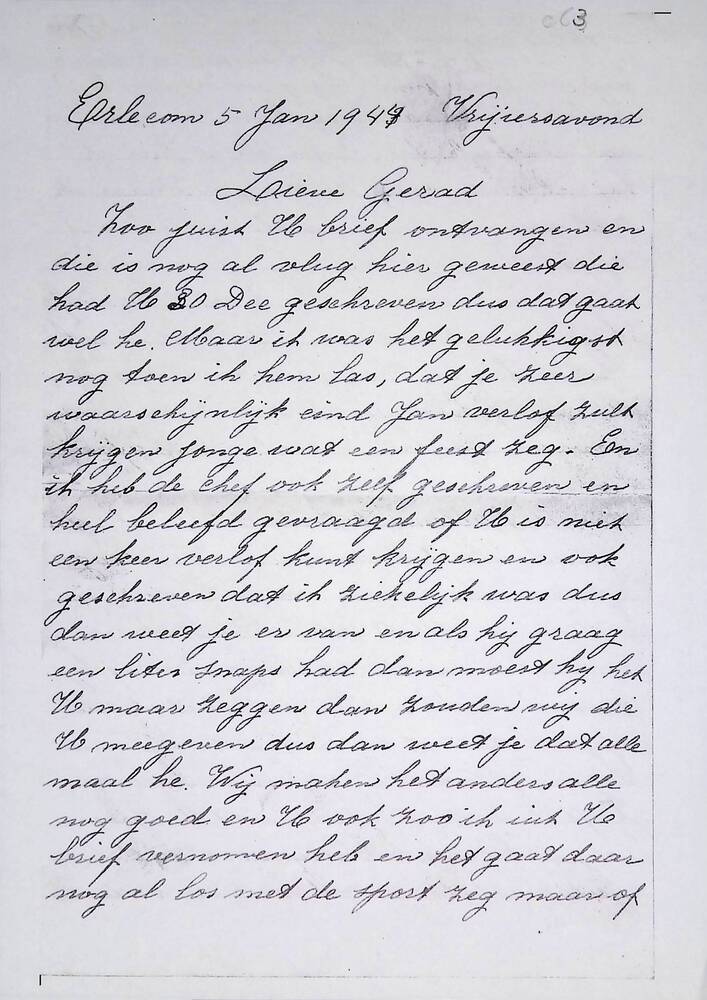 3
Erlecom 5 Jan 194 Vrijersavond
Lieve Gerad
Zoo juist U brief ontvangen en
die is nog al vlug hier geweest die
had U 30 Dec geschreven dus dat gaat
wel he. Maar it was het gelukkigst
nog toen ik hem las, dat je zeer
waarschijnlijk eind Jan verlof zult
krijgen jonge wat een feest zeg. En
ik heb de chef ook zelf geschreven en
heel beleefd gevraagd of U is niet
een keer verlof kunt krijgen en ook
geschreven dat ik ziekelijk was dus
dan weet je er van en als hij graag
een liter snaps had dan moest hij het
U maar zeggen dan zouden wij die
U meegeven dus dan weet je dat alle
maal he. Wij maken het anders alle
nog goed en U ook zoo ik uit U
brief vernomen heb en het gaat daar
nog al los met de sport zeg maar of